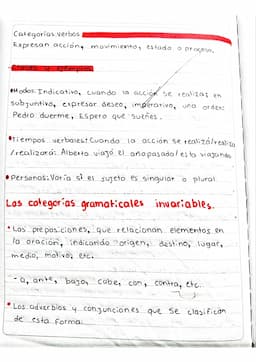 Categorías verbos
Expresan acción, movimiento, estado o proceso.
•Modos: Indicativo, cuando la acción se realiza; en
subjuntivo, expresar deseo, imperativo, una orden:
Pedro duerme, Espero que sueñes.
•Tiempos verbales: Cuando la acción se realizó/realiza
/realizará: Alberto viajó el año pasado/está viajando
•Personas: Varía si el sujeto es singular o plural.
Las categorías gramaticales invariables.
• Las preposiciones, que relacionan elementos en
la oración, indicando origen, destino, lugar,
medio, motivo, etc.
- a, ante, bajo, cabe, con, contra, etc.
• Los adverbios y conjunciones que se clasifican
de esta forma: